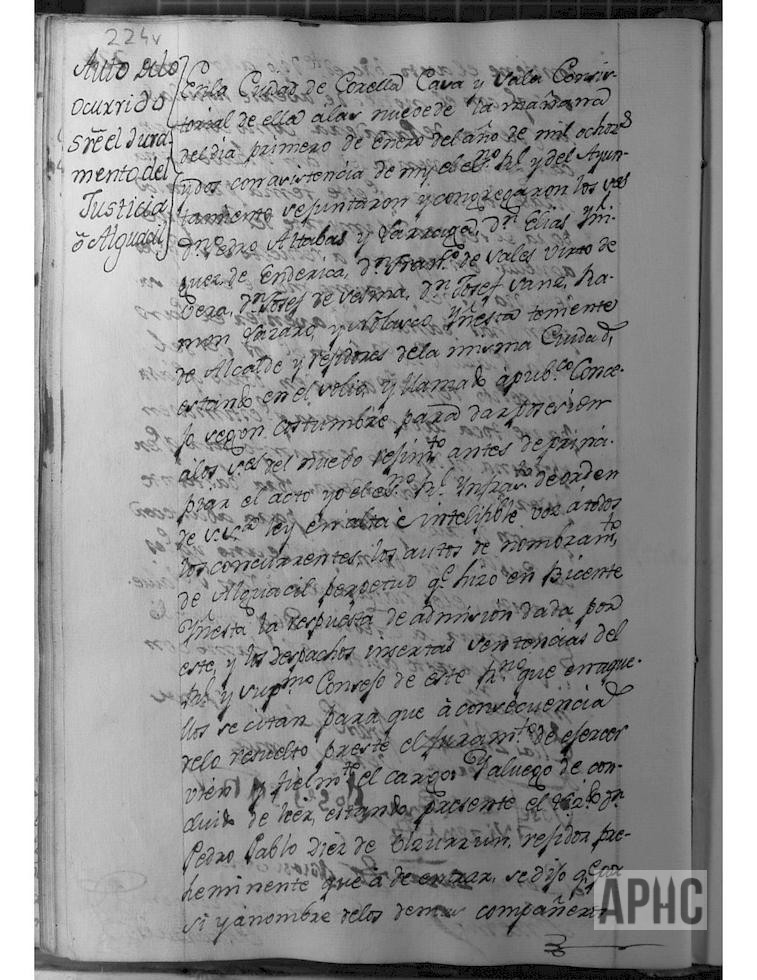 224v
Auto delo
ocurrido
sre el Jura-
mento del
Justicia
ò Alguacil
En la Ciudad de Corella Casa y Sala Consis-
torial de ella alas nuebe de la mañana
del dia primero de Enero del año de mil ochozs
y dos con asistencia de mj el esno Rl y del Ayun-
tamiento se juntaron y congregaron los ses
Dn Pedro Attabas y Larraga, Dn Elias Mi-
guel de Enderica, Dn Franco de Sales Virto de
Vera, Dn Josef de Sesma, Dn Josef Sanz, Ra-
mon Lazaro, y Nolasco Yñesta teniente
de Alcalde y rejidores dela misma Ciudad,
estando en el solio, y llamado à pubco Conce-
jo segun costumbre para dar posesion
alos ses del nuevo rejimto antes de princi-
piar el acto yo el esno Rl Ynfrasto de orden
de ss sa ley en alta è intelijible voz à todos
los concurrentes, los autos de nombramto
de Alguacil perpetuo qe hizo en Bicente
Yñesta la respuesta de admision dada por
este, y los despachos insertas sentencias del
Rl y supmo Consejo de este Rno que en aque-
llos se citan para que à consecuencia
delo resuelto preste el juramto de ejercer
vien y fielmte el cargo, Y aluego de con-
cluido de leer, estando presente el
Pedro Pablo Diez de Ulzurrun, rejidor pre-
heminente que à de entrar, se dijo qe por
si y à nombre delos demas compañeros
APHC